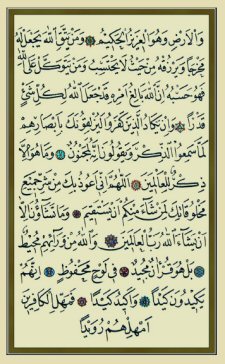 وَالْاَرْضِ وَهُوَ الْعَزِيزُ الْحَكِيمُ ۞ وَمَنْ يَتَّقِ اللّٰهَ يَجْعَلْ لَهُ
مَخْرَجًا وَيَرْزُقْهُ مِنْ حَيْثُ لَا يَحْتَسِبُ وَمَنْ يَتَوَكَّلْ عَلَى اللّٰهِ
فَهُوَ حَسْبُهُ اِنَّ اللّٰهَ بَالِغُ اَمْرِهِ قَدْ جَعَلَ اللّٰهُ لِكُلِّ شَيْءٍ
قَدْرًا ۞ وَاِنْ يَكَادُ الَّذِينَ كَفَرُوا لَيُزْلِقُونَكَ بِاَبْصَارِهِمْ
لَمَّا سَمِعُوا الذِّكْرَ وَيَقُولُونَ اِنَّهُ لَمَجْنُونٌ ۞ وَمَا هُوَ اِلَّا
ذِكْرٌ لِلْعَالَمِينَ ۞ اَللّٰهُمَّ اِنِّى اَعُوذُ بِكَ مِنْ شَرِّ جَمِيعِ
مَخْلُوقَاتِكَ لِمَنْ شَاءَ مِنْكُمْ اَنْ يَسْتَقِيمَ ۞ وَمَا تَشَاؤُنَ اِلَّا
اَنْ يَشَاءَ اللّٰهُ رَبُّ الْعَالَمِينَ ۞ وَاللّٰهُ مِنْ وَرَائِهِمْ مُحِيطٌ
۞ بَلْ هُوَ قُرْاٰنٌ مَجِيدٌ ۞ فِى لَوْحٍ مَحْفُوظٍ ۞ اِنَّهُمْ
يَكِيدُونَ كَيْدًا ۞ وَاَكِيدُ كَيْدًا ۞ فَمَهِّلِ الْكَافِرِينَ
اَمْهِلْهُمْ رُوَيْدًا